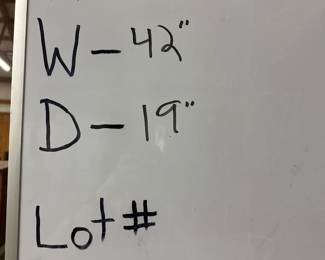 W - 42"
D - 19"
Lot #